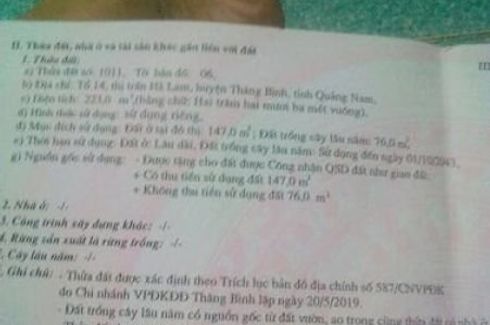 II. Thửa đất, nhà ở và tài sản khác gắn liền với đất
1. Thửa đất:
a) Thửa đất số: 1011, Tờ bản đồ: 06,
b) Địa chỉ: Tổ 14, thị trấn Hà Lam, huyện Thăng Bình, tỉnh Quảng Nam,
c) Diện tích: 223,0 m²,(bằng chữ: Hai trăm hai mươi ba mét vuông),
d) Hình thức sử dụng: sử dụng riêng,
đ) Mục đích sử dụng: Đất ở tại đô thị: 147,0 m²; Đất trồng cây lâu năm: 76,0 m²,
e) Thời hạn sử dụng: Đất ở: Lâu dài, Đất trồng cây lâu năm: Sử dụng đến ngày 01/10/2043,
g) Nguồn gốc sử dụng: - Được tặng cho đất được Công nhận QSD đất như giao đất:
+ Có thu tiền sử dụng đất 147,0 m²
+ Không thu tiền sử dụng đất 76,0 m²
2. Nhà ở: -/-
3. Công trình xây dựng khác: -/-
4. Rừng sản xuất là rừng trồng: -/-
. Cây lâu năm: -/-
. Ghi chú: - Thửa đất được xác định theo Trích lục bản đồ địa chính số 587/CNVPĐK
do Chi nhánh VPĐKĐĐ Thăng Bình lập ngày 20/5/2019.
- Đất trồng cây lâu năm có nguồn gốc từ đất vườn, ao trong cùng thửa đất có nhà ở
III